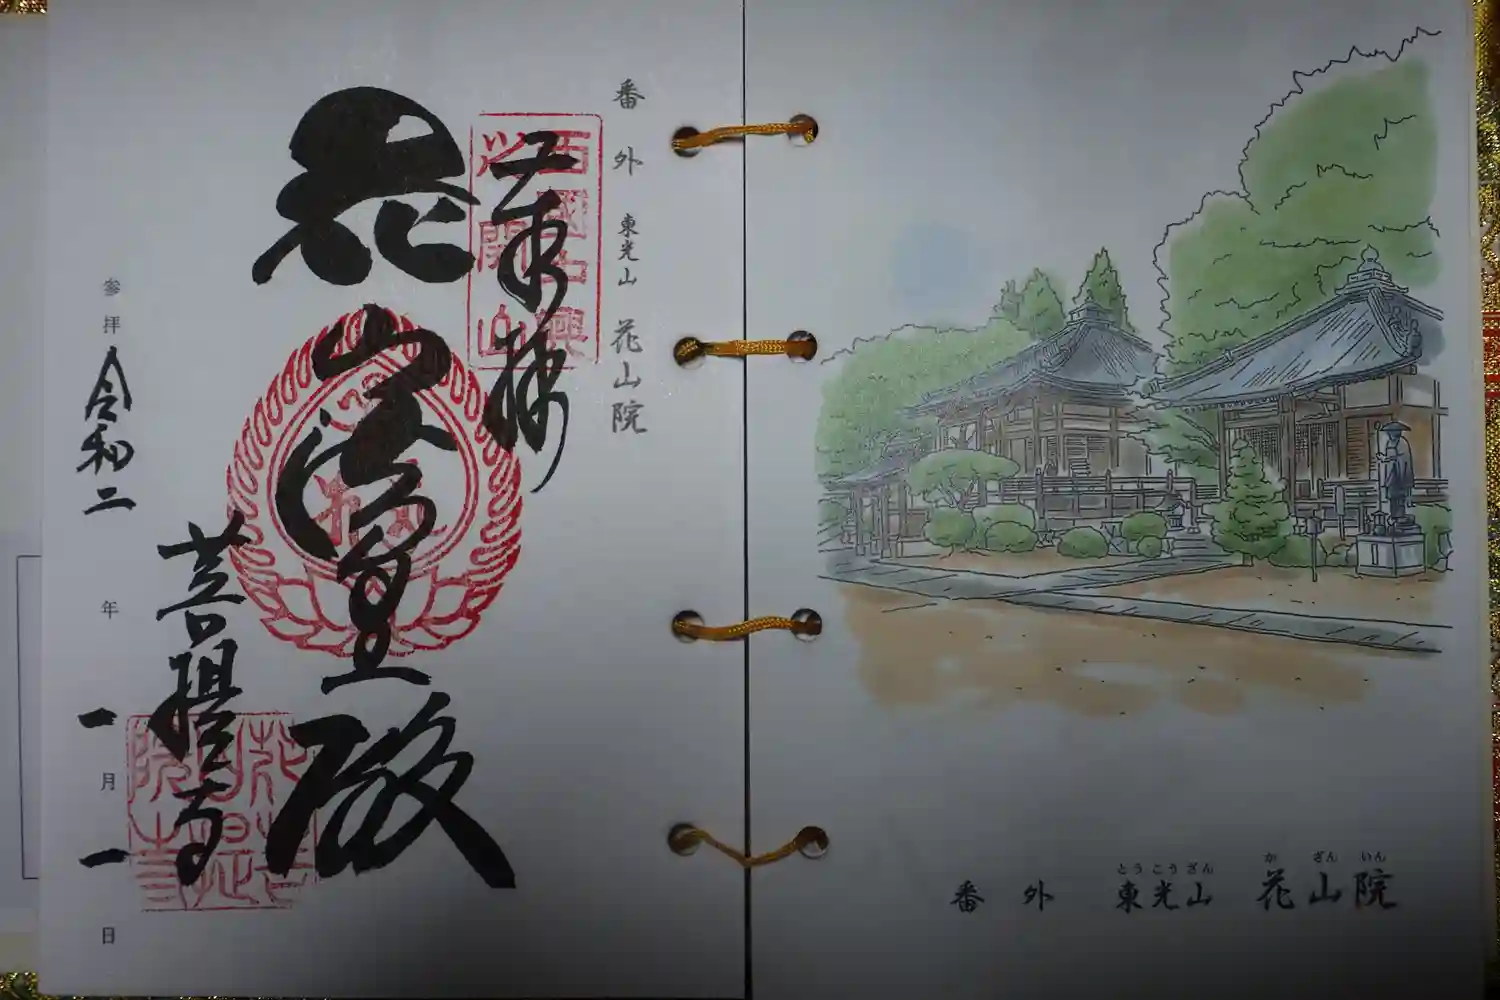 番外 東光山 花山院
奉拝
西國中興
開山
花山法皇殿
菩提寺
花山院菩提寺
参拝 令和二年一月一日
とうこうざん かざんいん
番外 東光山 花山院